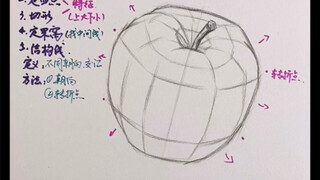 2. 定四点
特征
(上大下小)
3. 切形
4. 定果窝(找中间线)
5. 结构线
定义:不同朝向交记
方法:①朝向
②转折点
转折点